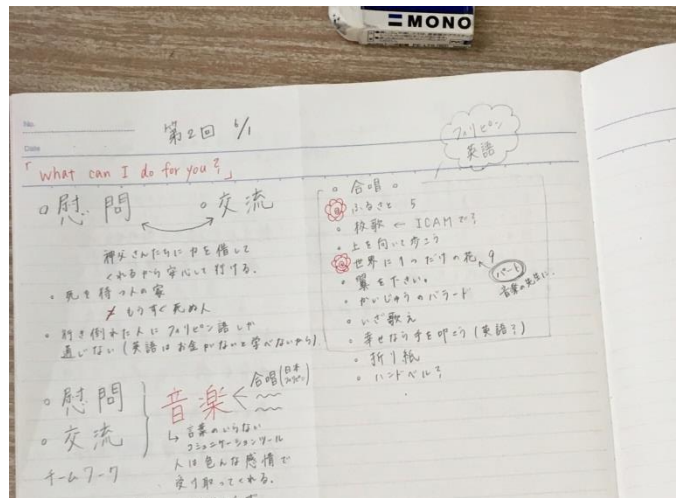 MONO
No.
Date
第2回 6/1
フィリピン
英語
「What can I do for you?」
。慰問 。交流
神父さんたちに力を借して
くれるから安心して行ける。
・死を待つ人の家
≠ もうすぐ死ぬ人
・行き倒れた人にフィリピン語しか
通じない(英語はお金がないと学べないから)
。慰問
。交流
チームワーク
音楽
合唱(日本
フィリピン)
↳ 言葉のいらない
コミュニケーションツール
人は色んな感情で
受け取ってくれる。
。合唱。
。ふるさと 5
・校歌 ← ICAMで?
・上を向いて歩こう
。世界に1つだけの花 9
パート
音楽の先生に
・翼を下さい。
・かいじゅうのバラード
・いざ歌え
・幸せなら手を叩こう(英語?)
・折り紙
・ハンドベル?